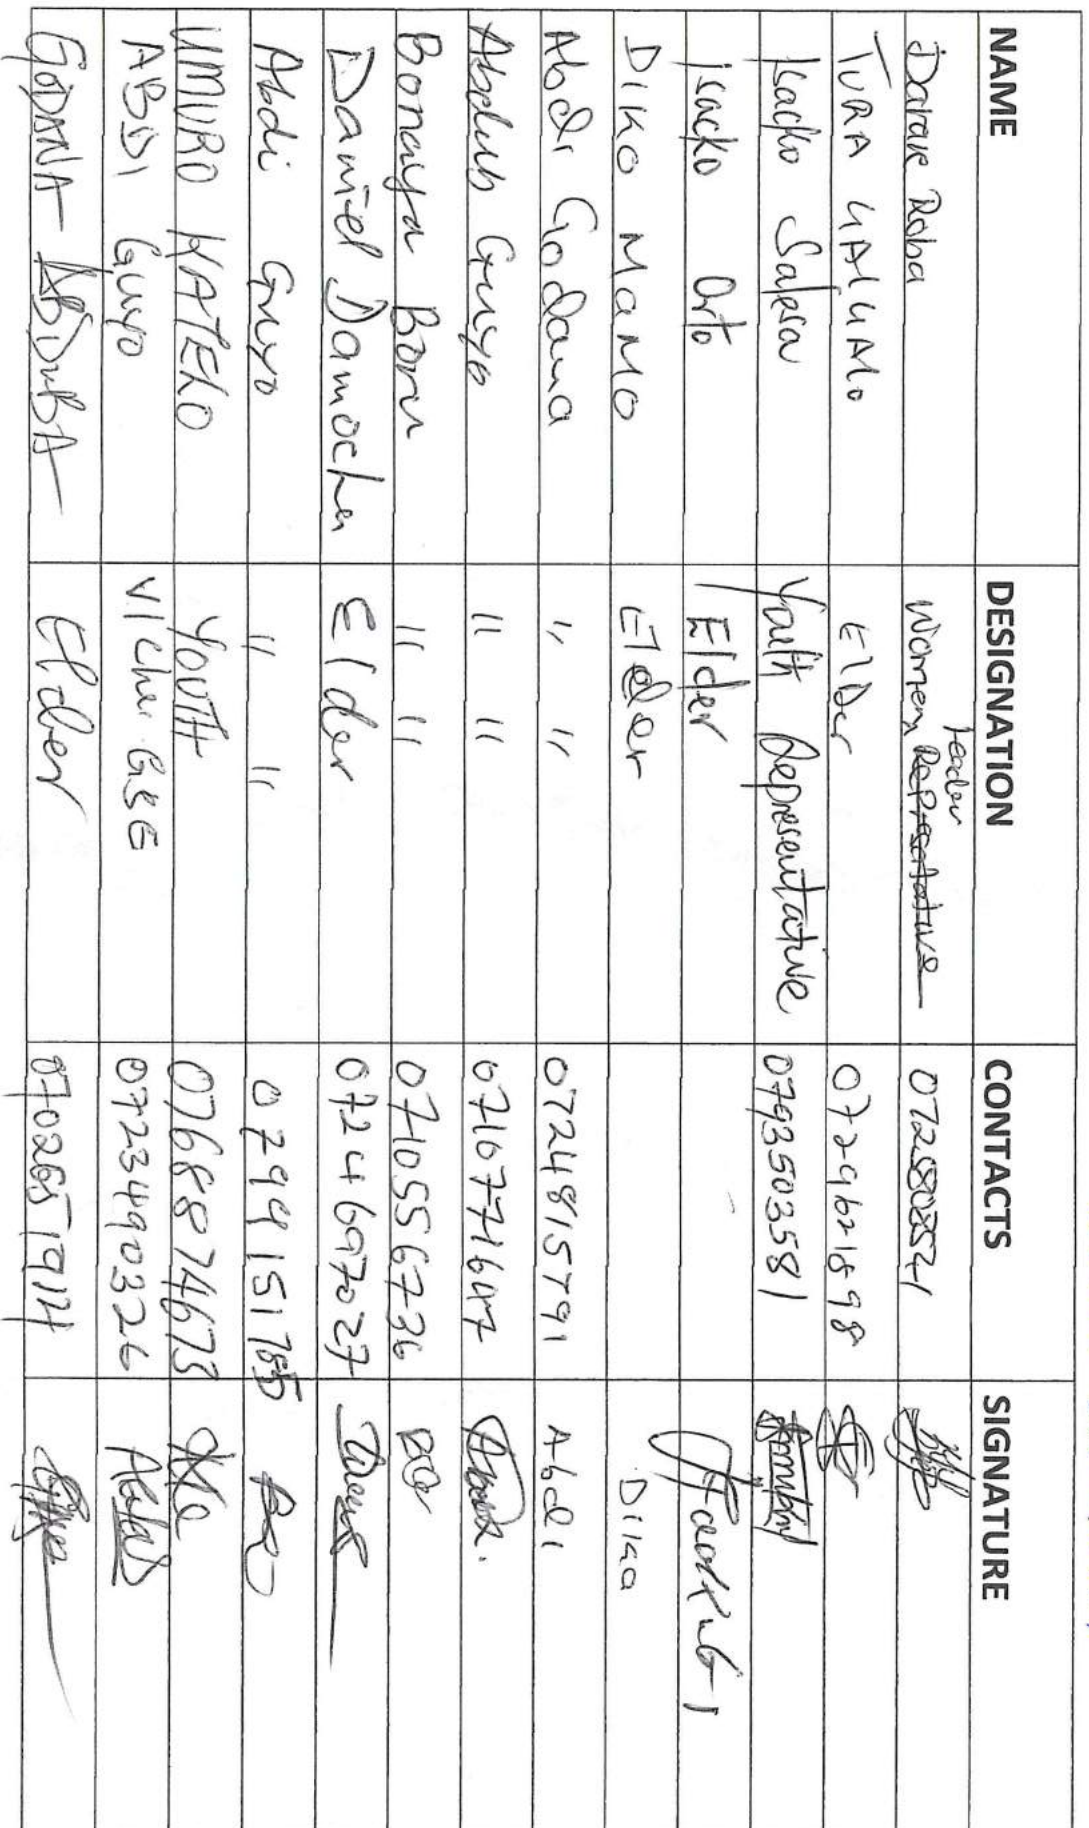 NAME DESIGNATION CONTACTS SIGNATURE
Darare Roba Women Leader Representative
TURA GALGALO ElDer 0729621898
Isacko Salesa Youth Representative 0793503581
Isacko Orto Elder
DIKO MAMO Elder Diko
Abdi Godana " " 0724815791 Abdi
Abdub Guyo " " 0710771647
Bonaya Boru " " 0710556736
Daniel Damocha Elder 0724697027
Abdi Guyo " "
UMURO KATELO YOUTH 0768874673
ABDI GUYO 0723490326
GODANA ABDUBA Elder